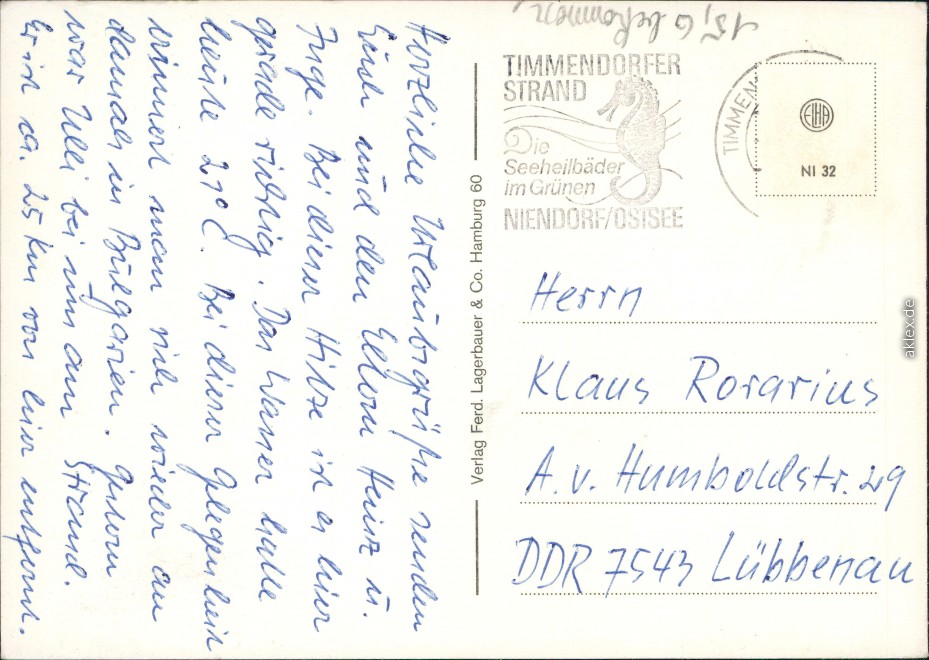 15,6 bekommen
TIMMENDORFER
STRAND
Die
Seeheilbäder
im Grünen
NIENDORF/OSTSEE
TIMMEN
ELHA
NI 32
Herzliche Urlaubsgrüße senden
Euch und den Eltern Heinz u.
Inge. Bei dieser Hitze ist es hier
gerade richtig. Das Wasser hatte
heute 21°C. Bei dieser Gelegenheit
erinnert man sich wieder an
damals in Bulgarien. Gestern
war Ulli bei uns am Strand.
Er ist ca. 25 km von hier entfernt.
Verlag Ferd. Lagerbauer & Co. Hamburg 60
Herrn
Klaus Rorarius
A. v. Humboldstr. 29
DDR 7543 Lübbenau
aklex.de